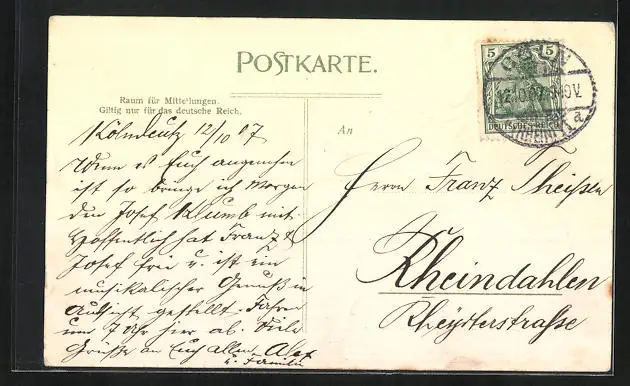 POSTKARTE.
Raum für Mitteilungen.
Giltig nur für das deutsche Reich.
An
5 5
DEUTSCHES REICH
CÖLN
12.10.07
a
Kölndeutz 12/10 07
Wenn es Euch angenehm
ist so bringe ich Morgen
den Josef Klumb mit.
Hoffentlich hat Franz &
Josef frei u. ist ein
musikalischer Genuß in
Aussicht gestellt. Fahren
um 7 Uhr hier ab. Viele
Grüße an Euch allen. Alex
u. Familie
Herrn Franz Theißen
Rheindahlen
Rheydterstraße